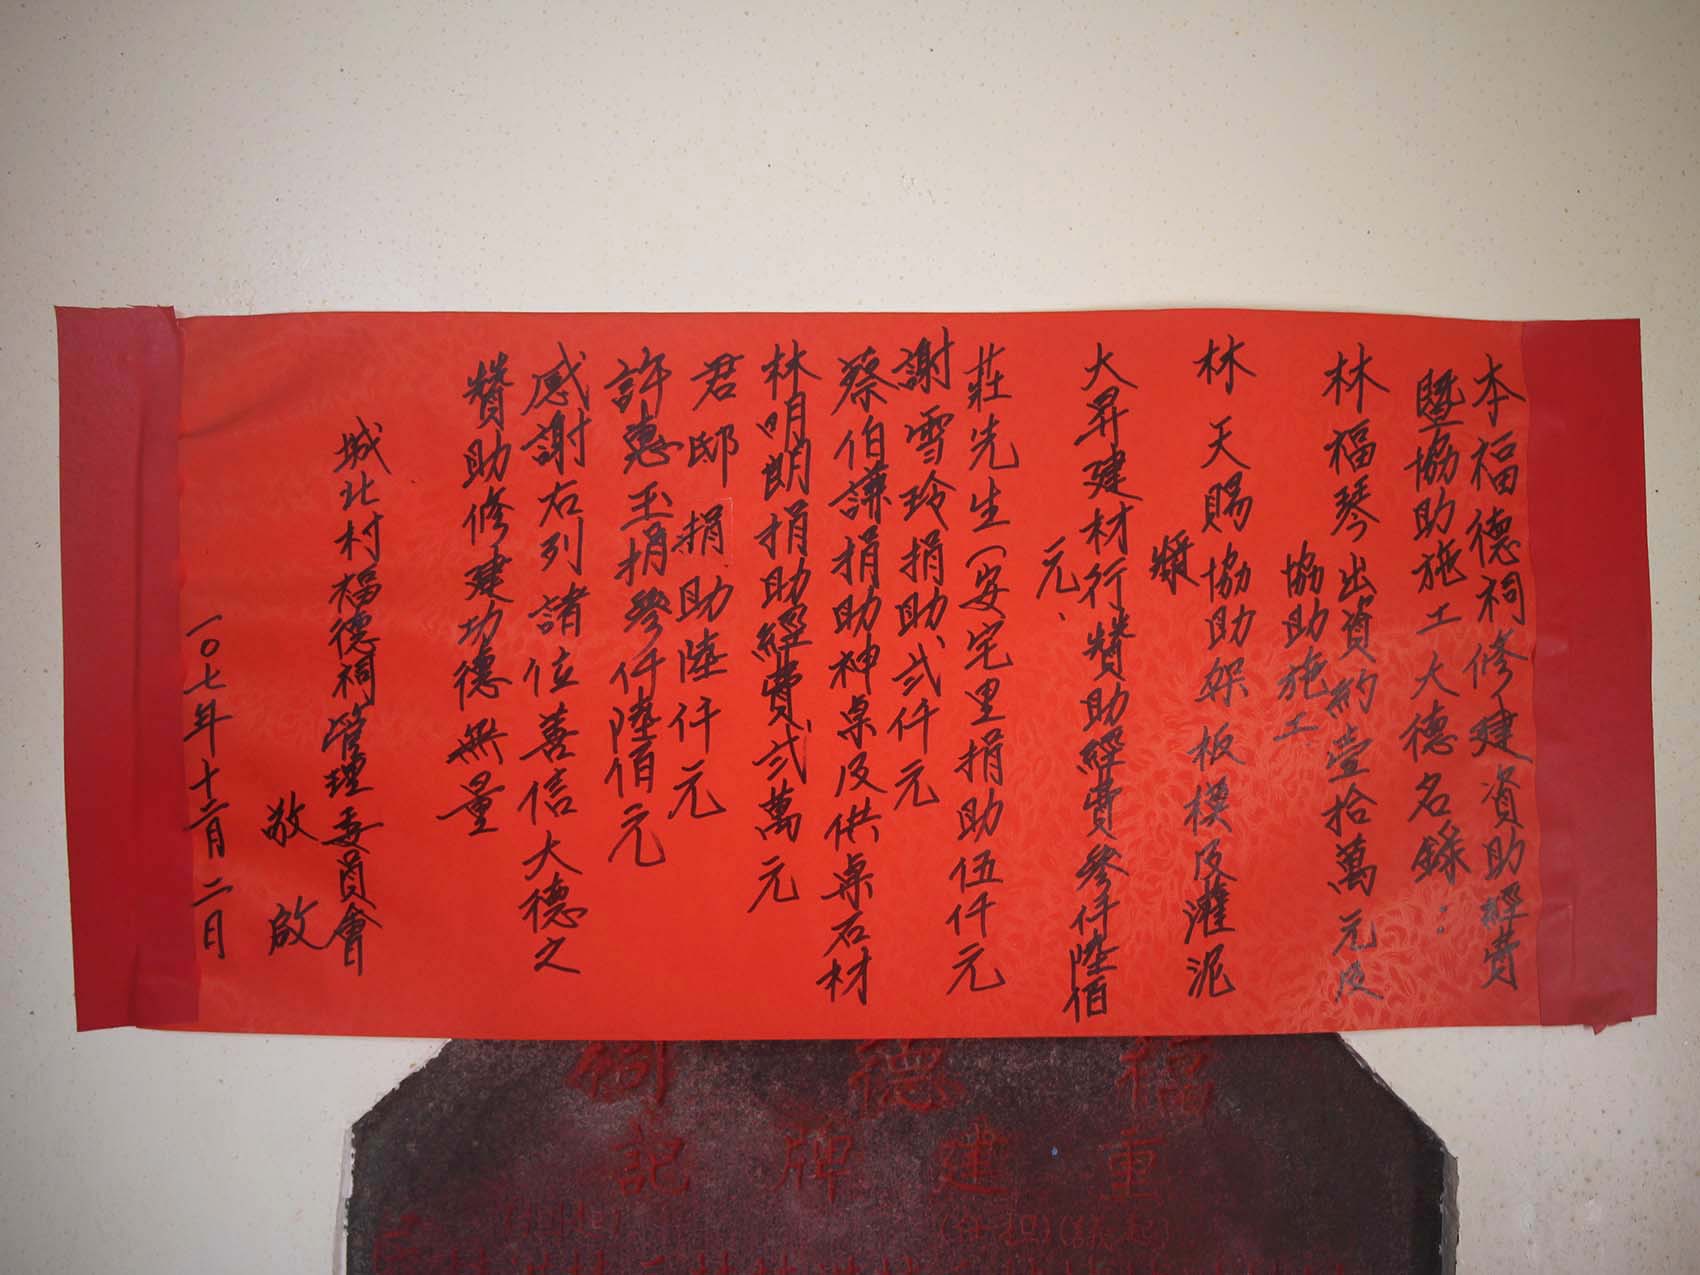 本福德祠修建資助經費
暨協助施工大德名錄：
林福琴出資約壹拾萬元及
協助施工
林天賜協助架板模及灌泥
漿
大昇建材行贊助經費參仟陸佰
元、
莊先生(安宅里捐助伍仟元
謝雪玲捐助、弍仟元
蔡伯謙捐助神桌及供桌石材
林明朗捐助經費、弍萬元
君邸 捐助陸仟元
許惠玉捐參仟陸佰元
感謝右列諸位善信大德之
贊助修建功德無量
城北村福德祠管理委員會
敬啟
一0七年十二月二日
福德祠
重建牌記